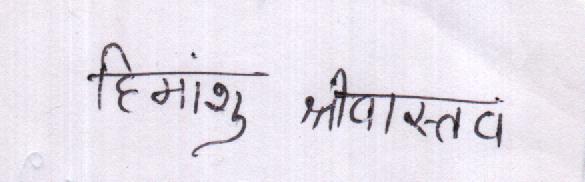 हिमांशु श्रीवास्तव